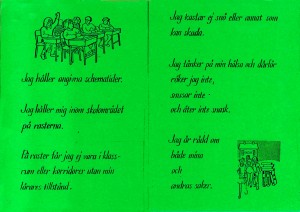 Jag håller angivna schematider.
Jag håller mig inom skolområdet
på rasterna.
På raster får jag ej vara i klass-
rum eller korridorer utan min
lärares tillstånd.
Jag kastar ej snö eller annat som
kan skada.
Jag tänker på min hälsa och därför
röker jag inte,
snusar inte -
och äter inte snask.
Jag är rädd om
både mina
och
andras saker.